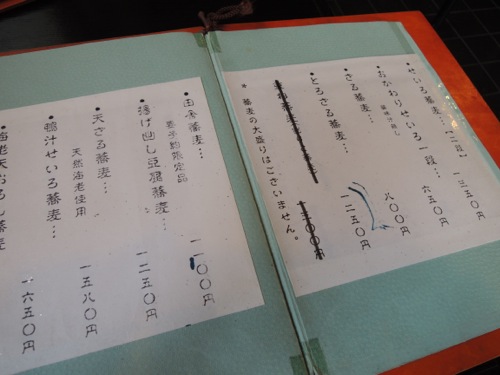 せいろ蕎麦… 一三五〇円
おかわりせいろ一段… 六五〇円
ざる蕎麦… 八〇〇円
とろざる蕎麦… 一二五〇円
＊ 蕎麦の大盛りはございません。
田舎蕎麦… 一一〇〇円
若干数限定品
揚げ出し豆腐蕎麦… 一二五〇円
天ざる蕎麦… 一五八〇円
天然海老使用
鴨汁せいろ蕎麦… 一六五〇円
海老天おろし蕎麦